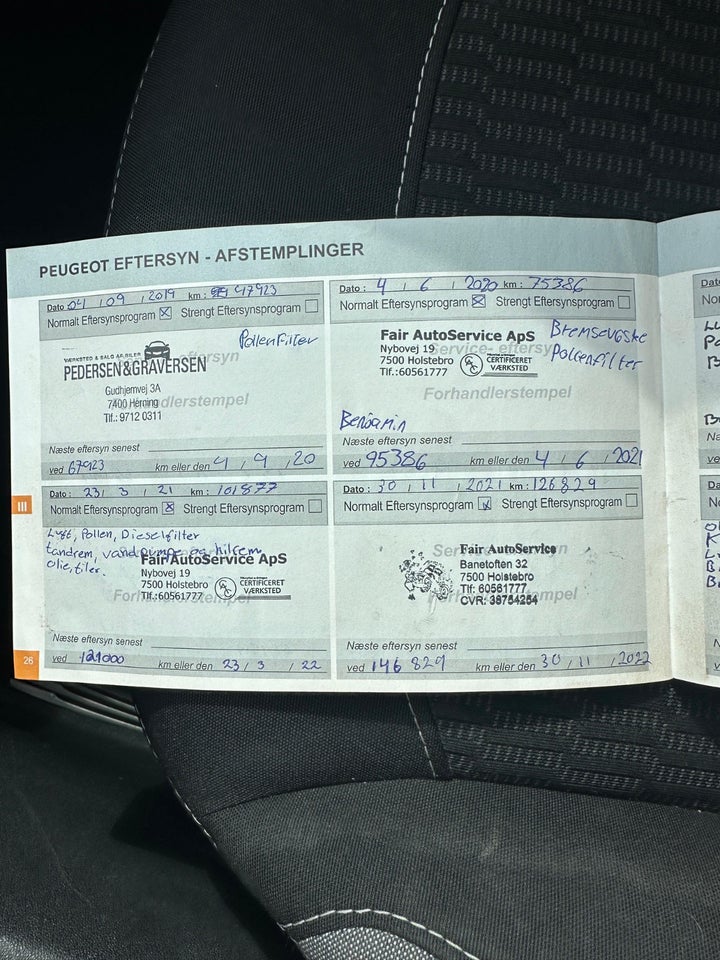 PEUGEOT EFTERSYN - AFSTEMPLINGER
Dato 04 / 09 / 2019 km: 47923
Normalt Eftersynsprogram ☒ Strengt Eftersynsprogram ☐
Pollenfilter
Service- eftersyn
VÆRKSTED & SALG AF BILER
PEDERSEN & GRAVERSEN
Gudhjemvej 3A
7400 Herning
Forhandlerstempel
Tlf.: 9712 0311
Næste eftersyn senest
ved 67923 km eller den 4 / 9 / 20
Dato : 4 / 6 / 2020 km : 75386
Normalt Eftersynsprogram ☒ Strengt Eftersynsprogram ☐
Fair AutoService ApS
Bremsevæske
Nybovej 19
Service- eftersyn
Pollenfilter
7500 Holstebro
CERTIFICERET
VÆRKSTED
Tlf.:60561777
Forhandlerstempel
Benjamin
Næste eftersyn senest
ved 95386 km eller den 4 / 6 / 2021
Dato : 23 / 3 / 21 km : 101877
Normalt Eftersynsprogram ☒ Strengt Eftersynsprogram ☐
Luft, Pollen, Dieselfilter
tandrem, vandpumpe og kilrem
olie, filer.
Fair AutoService ApS
Nybovej 19
7500 Holstebro
CERTIFICERET
VÆRKSTED
Tlf.:60561777
Forhandlerstempel
Næste eftersyn senest
ved 121000 km eller den 23 / 3 / 22
Dato : 30 / 11 / 2021 km : 126829
Normalt Eftersynsprogram ☒ Strengt Eftersynsprogram ☐
Fair AutoService
Banetoften 32
7500 Holstebro
Tlf: 60561777
CVR: 38754254
Forhandlerstempel
Næste eftersyn senest
ved 146 829 km eller den 30 / 11 / 2022
III
26